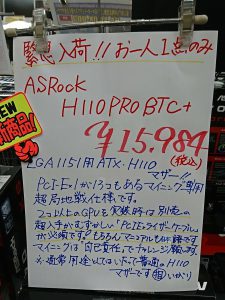 緊急入荷!! お一人1点のみ
ASRock
H110 PRO BTC+
NEW
新商品!
¥15,984
(税込)
LGA1151用ATX・H110
マザー!!
PCIEx1が13つもあるマイニング専用
超局地戦仕様です。
2つ以上のGPUを実験時は別売の
超入手がむずかしい「PCIEライザーケーブル」
が必須です。もちろんマニュアルも
マイニングは「自己責任」でチャレンジ願います
※通常用途としては、いたって普通のH110
マザーです